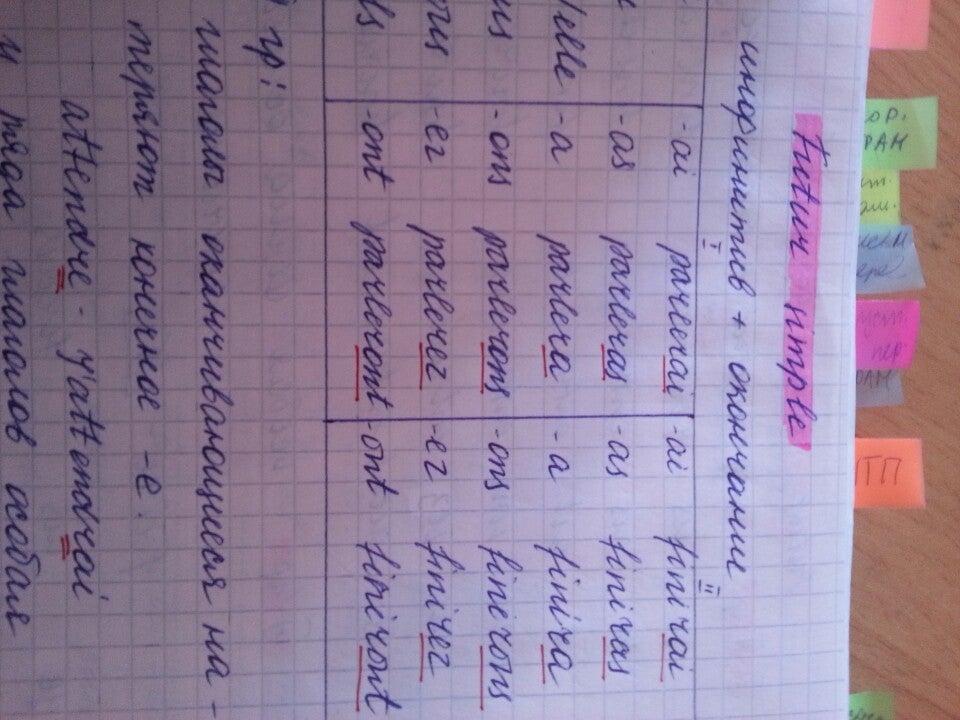 Futur simple
инфинитив + окончание
I II
-ai parlerai -ai finirai
-as parleras -as finiras
/elle -a parlera -a finira
us -ons parlerons -ons finirons
ous -ez parlerez -ez finirez
ls -ont parleront -ont finiront
гр:
глаголы оканчивающиеся на -
теряют конечное -e.
attendre - j'attendrai
У ряда глаголов особая